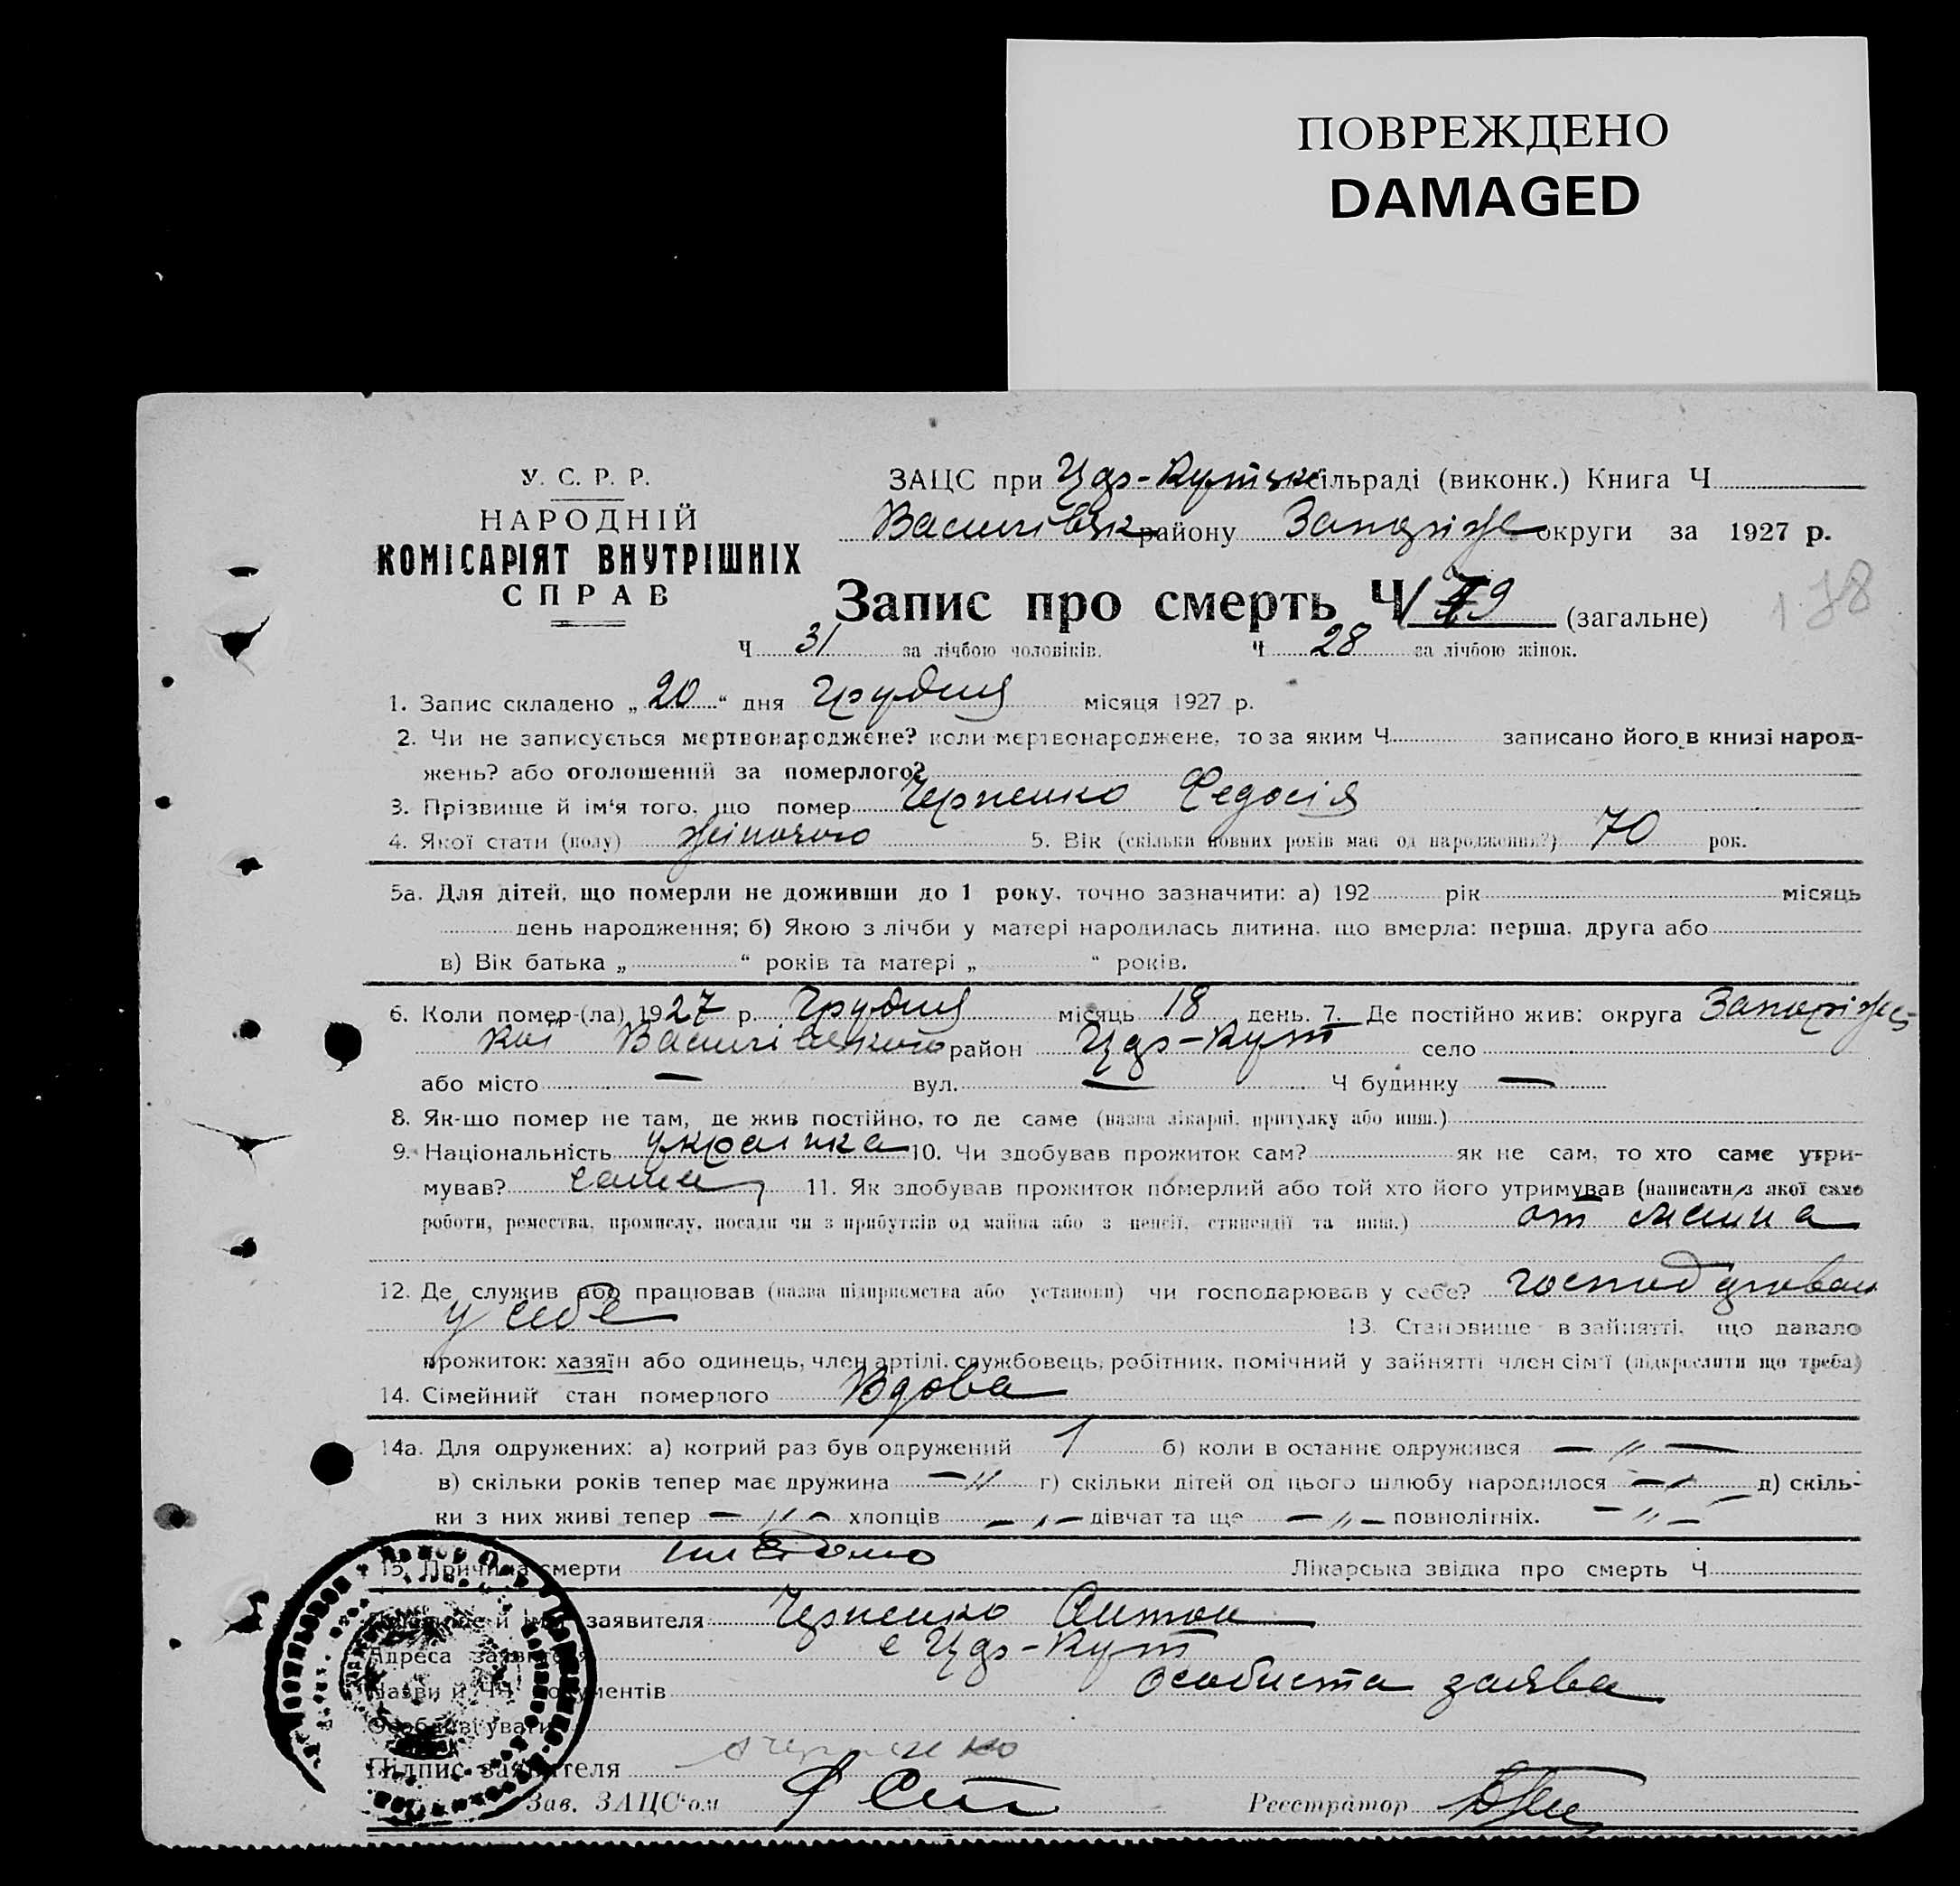 ПОВРЕЖДЕНО
DAMAGED
У. С. Р. Р.
НАРОДНІЙ
КОМІСАРІЯТ ВНУТРІШНІХ
СПРАВ
ЗАЦС при сільраді (виконк.) Книга Ч
Василівск району Запоріж округи за 1927 р.
Запис про смерть Ч 79 (загальне)
178
Ч 31 за лічбою чоловіків. Ч 28 за лічбою жінок.
1. Запис складено „ 20 “ дня Грудня місяця 1927 р.
2. Чи не записується мертвонароджене? коли мертвонароджене, то за яким Ч записано його в книзі народ-
жень? або оголошений за померлого?
3. Прізвище й ім'я того, що помер Черненко Федосія
4. Якої стати (полу) жіночого 5. Вік (скільки повних років має од народження?) 70 рок.
5а. Для дітей, що померли не доживши до 1 року, точно зазначити: а) 192 рік місяць
день народження; б) Якою з лічби у матері народилась дитина, що вмерла: перша, друга або
в) Вік батька „ “ років та матері „ “ років.
6. Коли помер-(ла) 1927 р. Грудня місяць 18 день. 7. Де постійно жив: округа Запоріжс
кої Василівського район -Кут село
або місто — вул. — Ч будинку —
8. Як-що помер не там, де жив постійно, то де саме (назва лікарні, притулку або инш.)
9. Національність українка 10. Чи здобував прожиток сам? як не сам, то хто саме утри-
мував? сама 11. Як здобував прожиток померлий або той хто його утримував (написати з якої саме
роботи, ремества, промислу, посади чи з прибутків од майна або з пенсії, стипендії та инш.) от
12. Де служив або працював (назва підприємства або установи) чи господарював у себе? господарювала
у себе 13. Становище в зайнятті, що давало
прожиток: хазяїн або одинець, член артілі, службовець, робітник, помічний у зайнятті член сім'ї (підкреслити що треба)
14. Сімейний стан померлого Вдова
14а. Для одружених: а) котрий раз був одружений 1 б) коли в останнє одружився — „ —
в) скільки років тепер має дружина — „ г) скільки дітей од цього шлюбу народилося — „ — д) скіль-
ки з них живі тепер — „ — хлопців — „ — дівчат та ще — „ — повнолітніх. — „ —
15. Причина смерти Лікарська звідка про смерть Ч
Прізвище й ім'я заявителя Черненко Антон
Адреса заявителя с -Кут
Назви й Ч Ч документів особиста заява
Особливі уваги
Підпис заявителя
Зав. ЗАЦС'ом Реєстратор